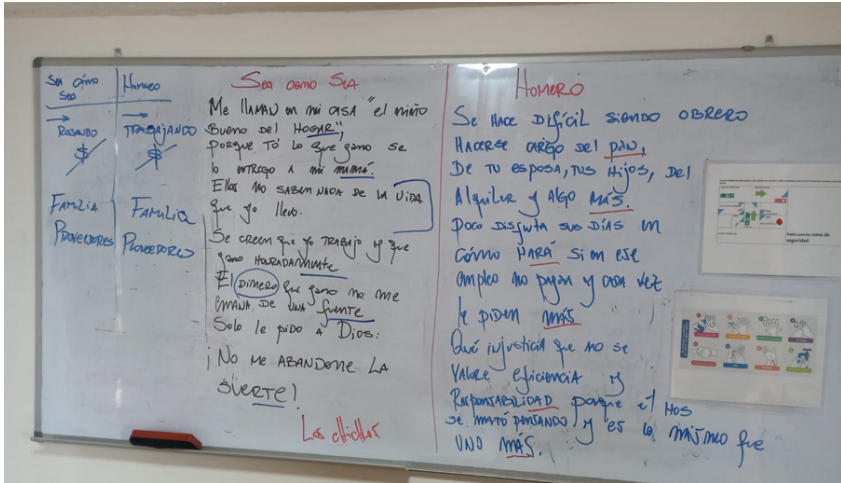 Sea cómo Sea
Homero
ROBANDO
TRABAJANDO
$
$
FAMILIA
FAMILIA
PROVEEDORES
PROVEEDORES
Sea como Sea
Me llaman en mi casa "el niño
bueno del HOGAR",
porque tó lo que gano se
lo entrego a mi mamá.
Ellos no saben nada de la vida
que yo llevo.
Se creen que yo trabajo y que
gano honradamente
El dinero que gano no me
emana de una fuente
Solo le pido a Dios:
¡No me abandone la
suerte!
Homero
Se hace difícil siendo obrero
Hacerse cargo del pan,
De tu esposa, tus hijos, del
Alquiler y algo más.
poco disfruta sus días en
cómo hará si en ese
empleo no pagan y cada vez
le piden más
Qué injusticia que no se
valore eficiencia y
Responsabilidad porque el
se mató pensando y es lo mismo que
uno más.